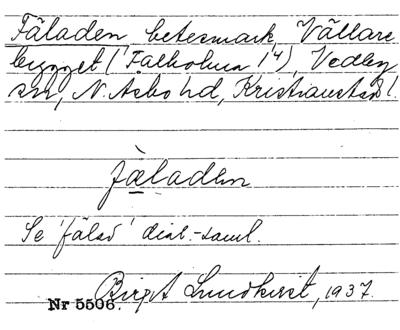 Fäladen betesmark, Vällare
bygget (Falholma 1⁴), Vedby
sn, N. Åsbo hd, Kristianstad l.
fäladen
Se 'fälad' dial.-saml.
Birgit Lundkvist, 1937.
Nr 5506.